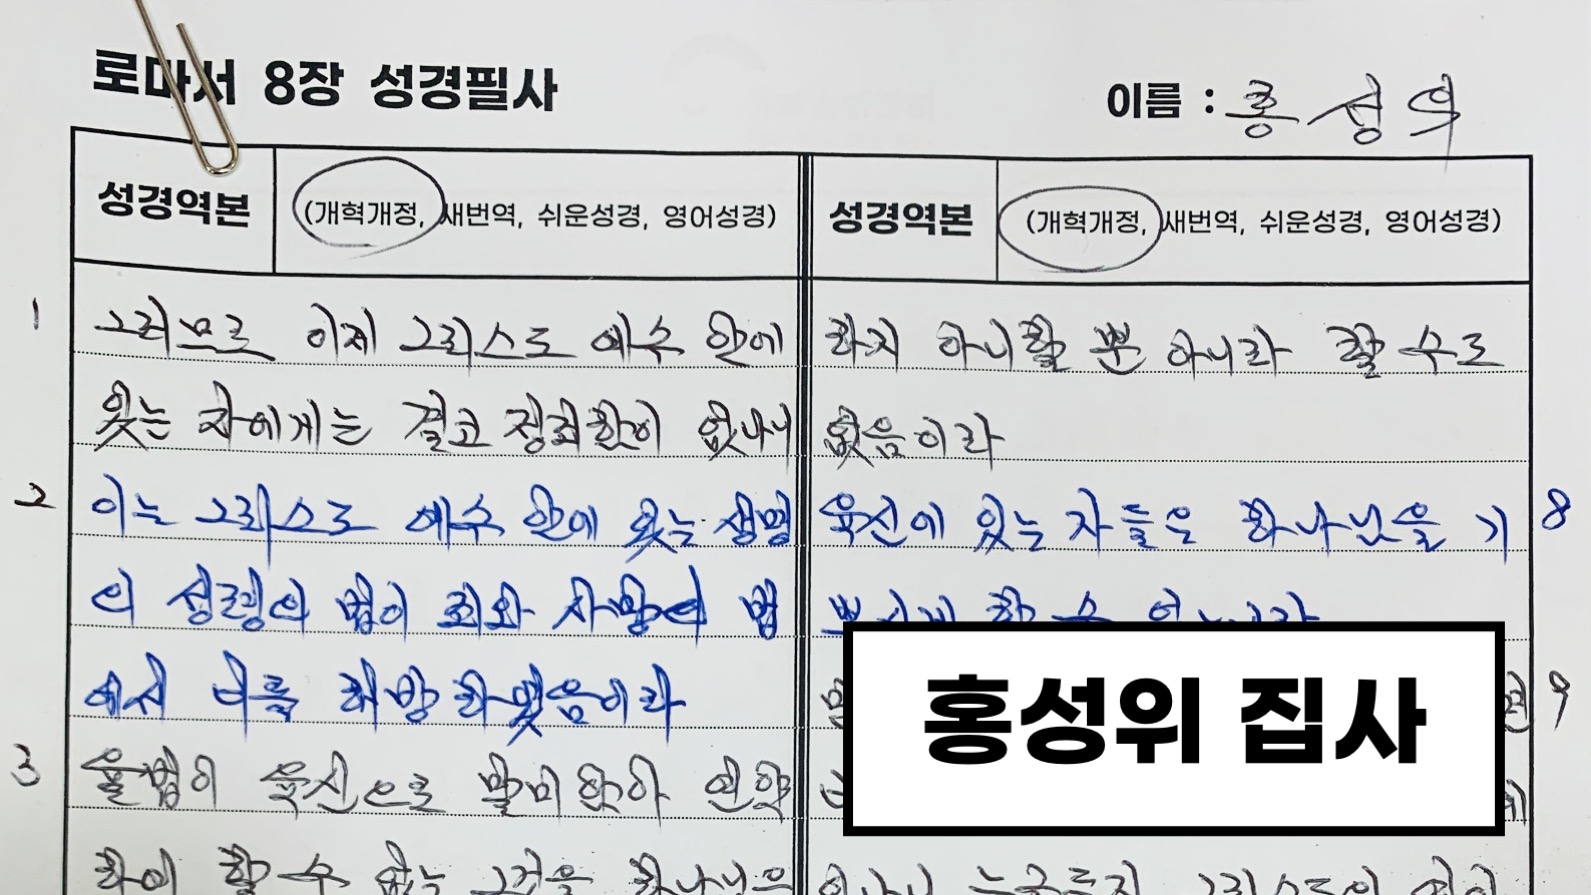 로마서 8장 성경필사
이름 : 홍성위
성경역본 (개혁개정, 새번역, 쉬운성경, 영어성경)
1 그러므로 이제 그리스도 예수 안에
있는 자에게는 결코 정죄함이 없나니
2 이는 그리스도 예수 안에 있는 생명
의 성령의 법이 죄와 사망의 법
에서 너를 해방하였음이라
3 율법이 육신으로 말미암아 연약
하여 할 수 없는 그것을 하나님은
성경역본 (개혁개정, 새번역, 쉬운성경, 영어성경)
하지 아니할 뿐 아니라 할 수도
없음이라
육신에 있는 자들은 하나님을 기 8
쁘시게 할 수 없느니라
9
홍성위 집사